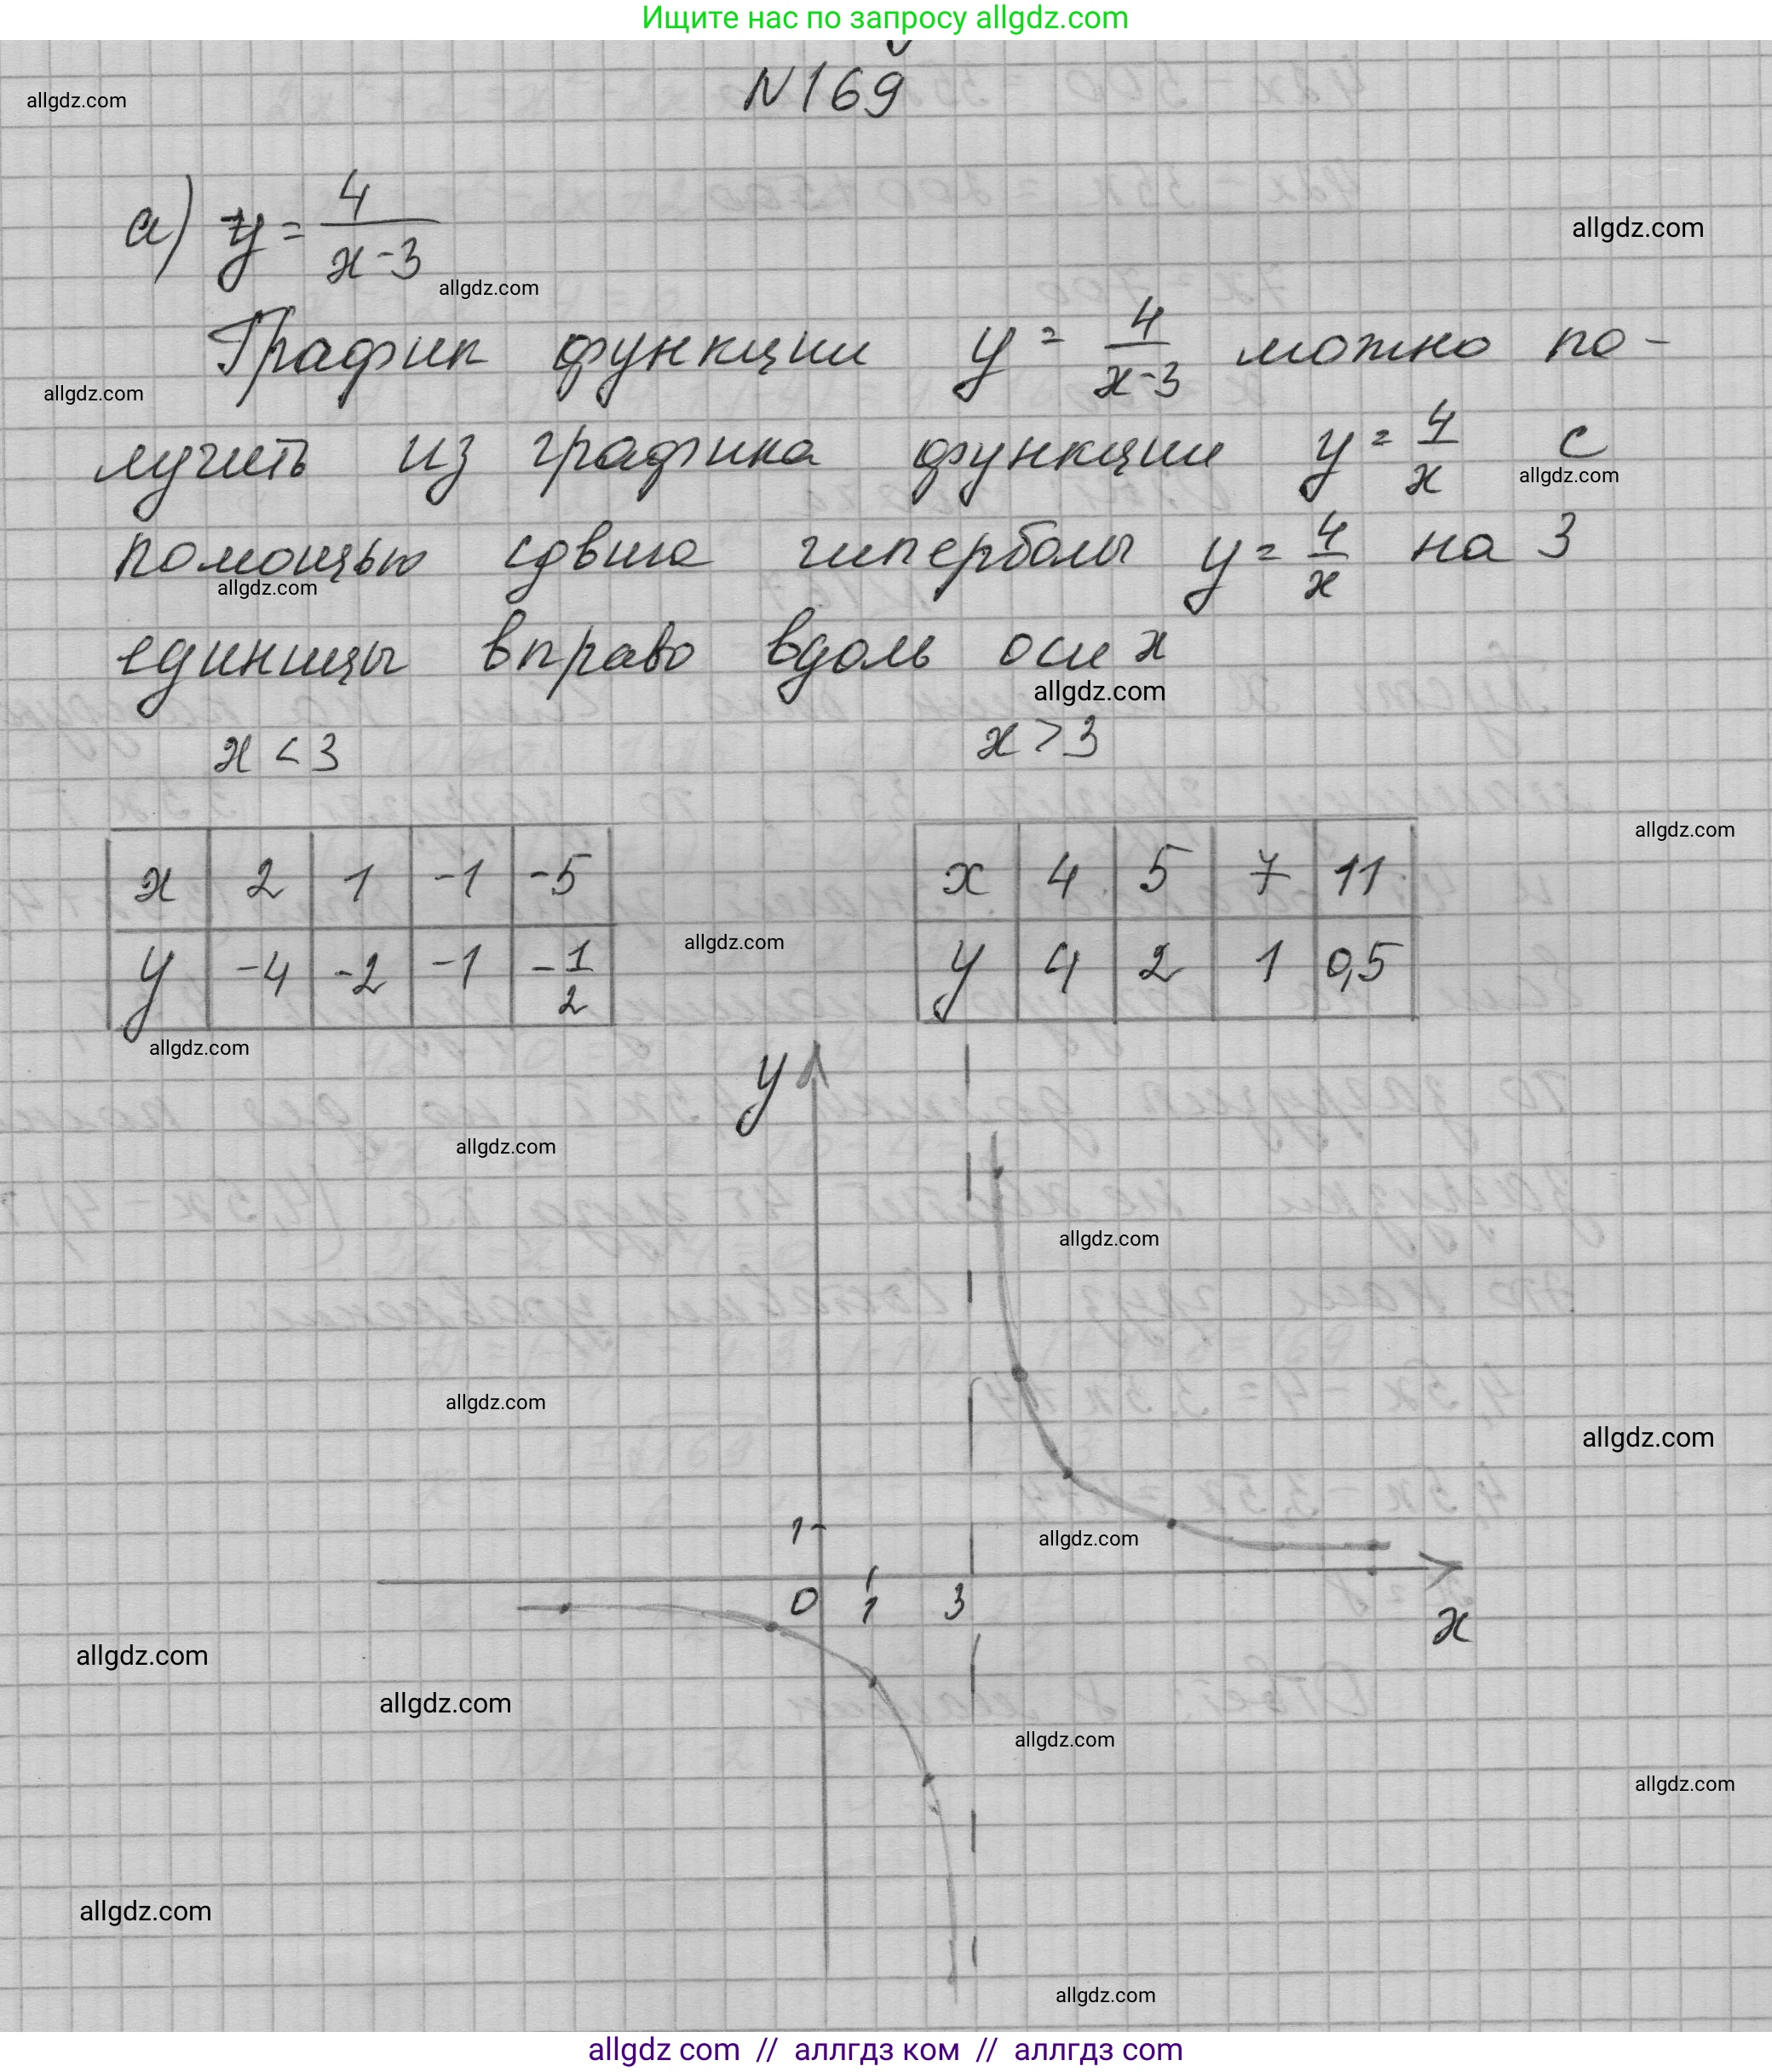 Ищите нас по запросу allgdz.com
N169
allgdz.com
а) y = 4/(x-3)
allgdz.com
allgdz.com
График функции y = 4/(x-3) можно по-
allgdz.com
лучить из графика функции y = 4/x с
allgdz.com
помощью сдвига гиперболы y = 4/x на 3
allgdz.com
единицы вправо вдоль оси x
allgdz.com
x < 3 x > 3
allgdz.com
x 2 1 -1 -5
y -4 -2 -1 -1/2
x 4 5 7 11
y 4 2 1 0,5
allgdz.com
allgdz.com
y
allgdz.com
allgdz.com
allgdz.com
allgdz.com
1
allgdz.com
0 1 3
x
allgdz.com
allgdz.com
allgdz.com
allgdz.com
allgdz.com
allgdz.com
allgdz com // аллгдз ком // аллгдз com